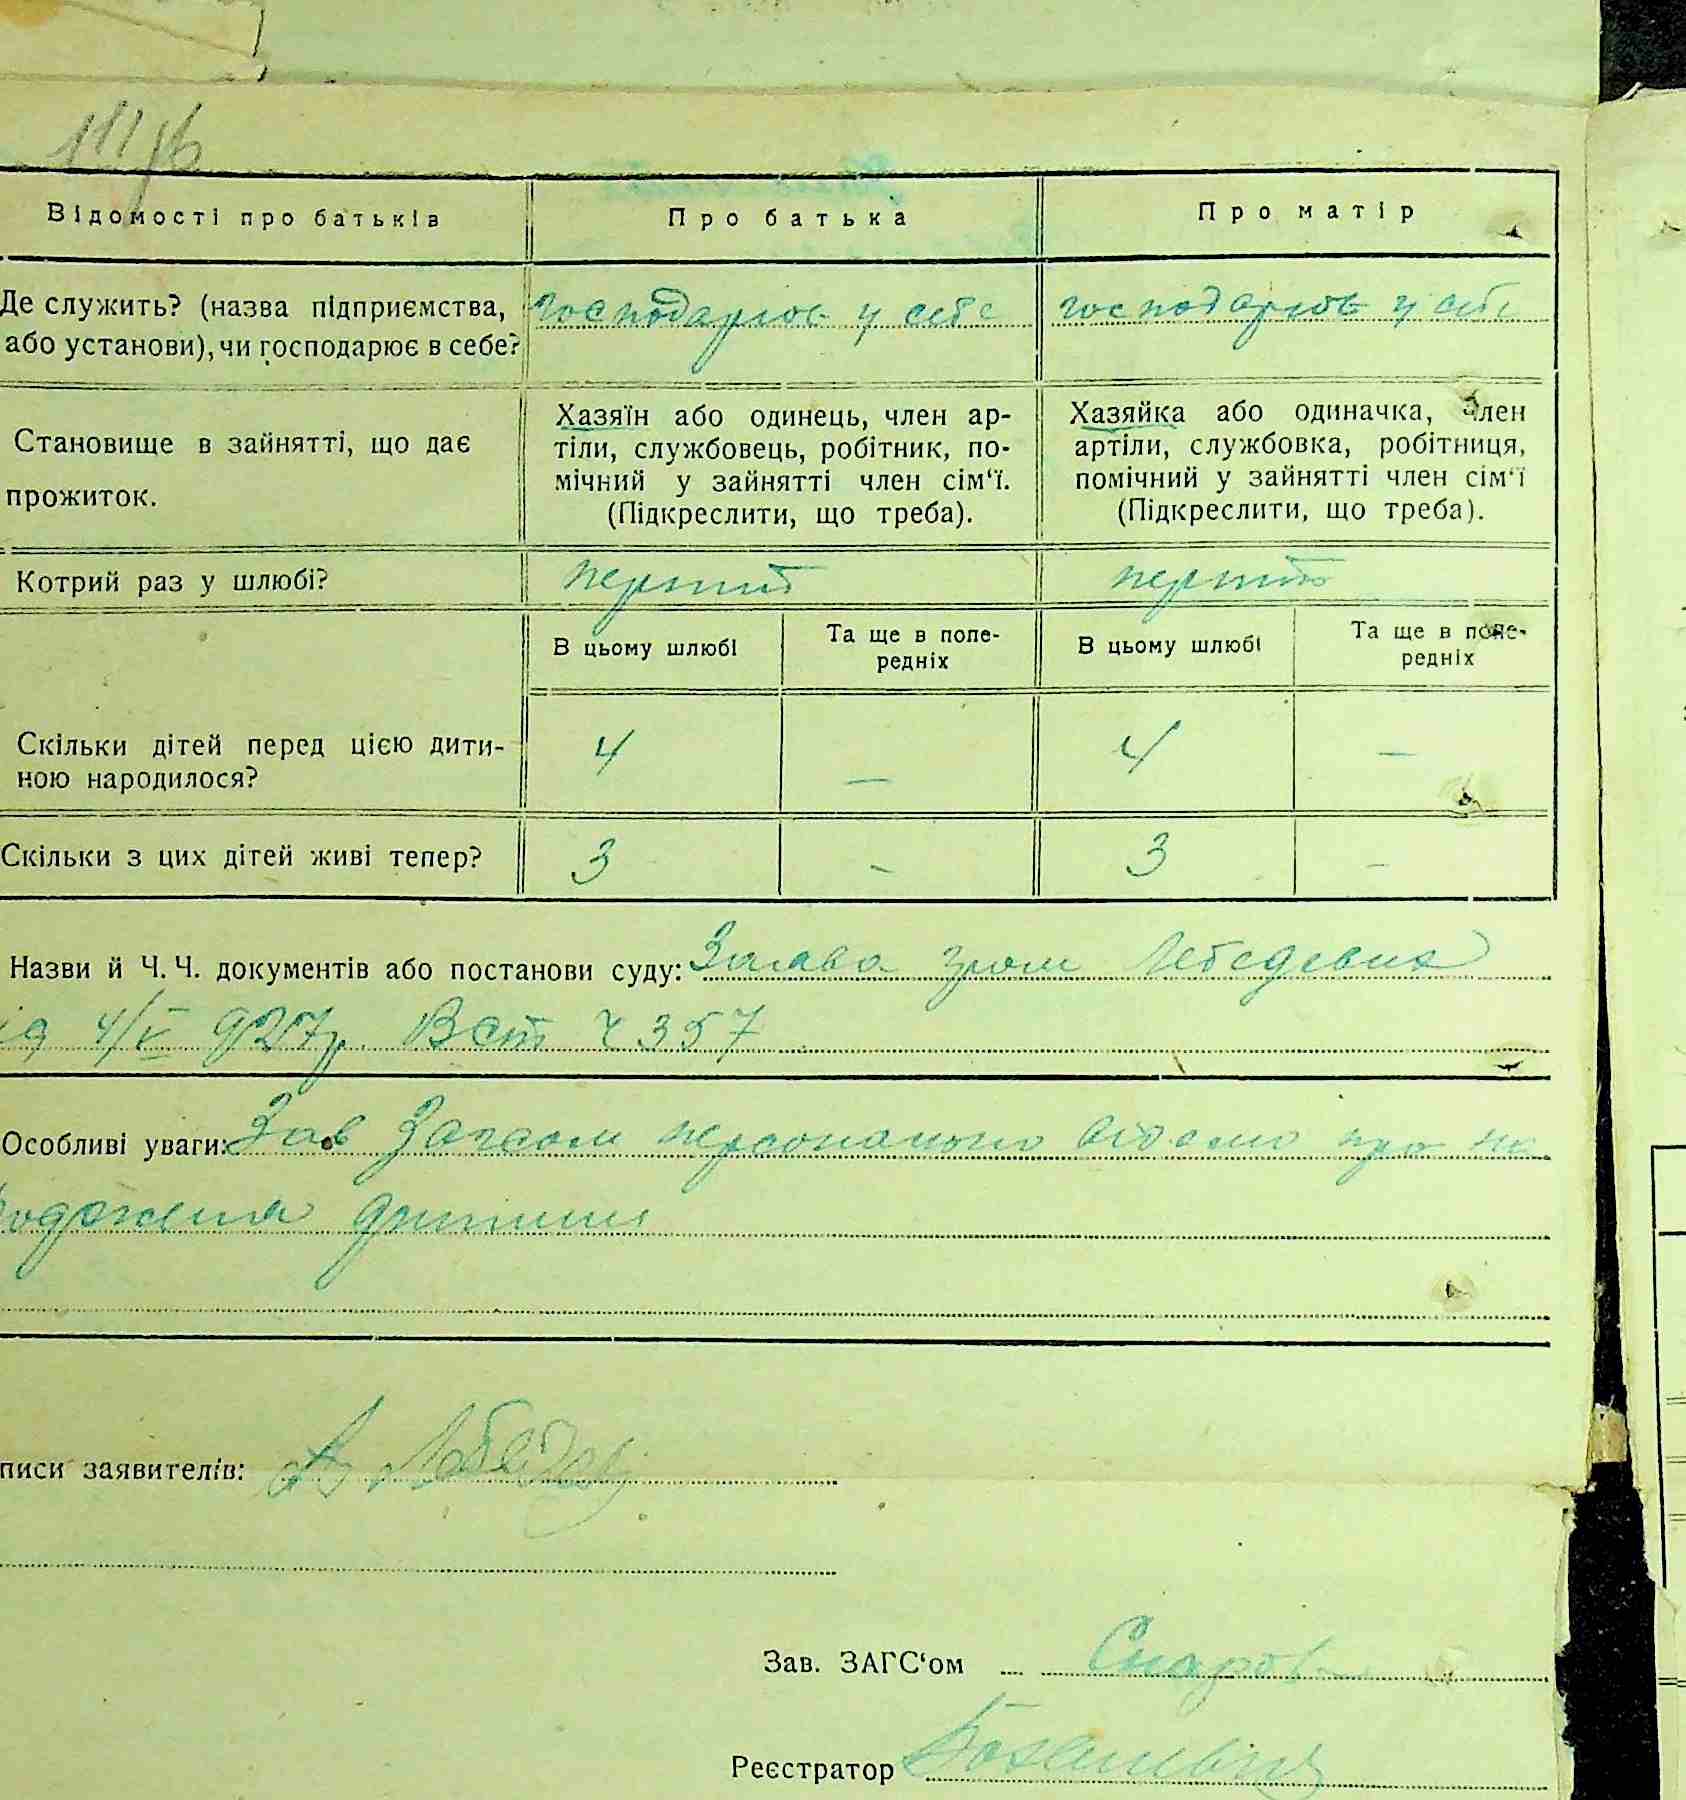 Відомості про батьків
Про батька
Про матір
Де служить? (назва підприємства,
або установи), чи господарює в себе?
господарює у себе
господарює у себе
Становище в зайнятті, що дає
прожиток.
Хазяїн або одинець, член ар-
тіли, службовець, робітник, по-
мічний у зайнятті член сім‘ї.
(Підкреслити, що треба).
Хазяйка або одиначка, член
артіли, службовка, робітниця,
помічний у зайнятті член сім‘ї
(Підкреслити, що треба).
Котрий раз у шлюбі?
перший
перший
В цьому шлюбі
Та ще в попе-
редніх
В цьому шлюбі
Та ще в попе-
редніх
Скільки дітей перед цією дити-
ною народилося?
4
—
4
—
Скільки з цих дітей живі тепер?
3
-
3
-
Назви й Ч. Ч. документів або постанови суду: Заява гром Лебедєвих
4/V 927р. Вст ч 357
Особливі уваги: Зав Загсом персонально про на
родження дитини
писи заявителів:
Зав. ЗАГС‘ом
Реєстратор